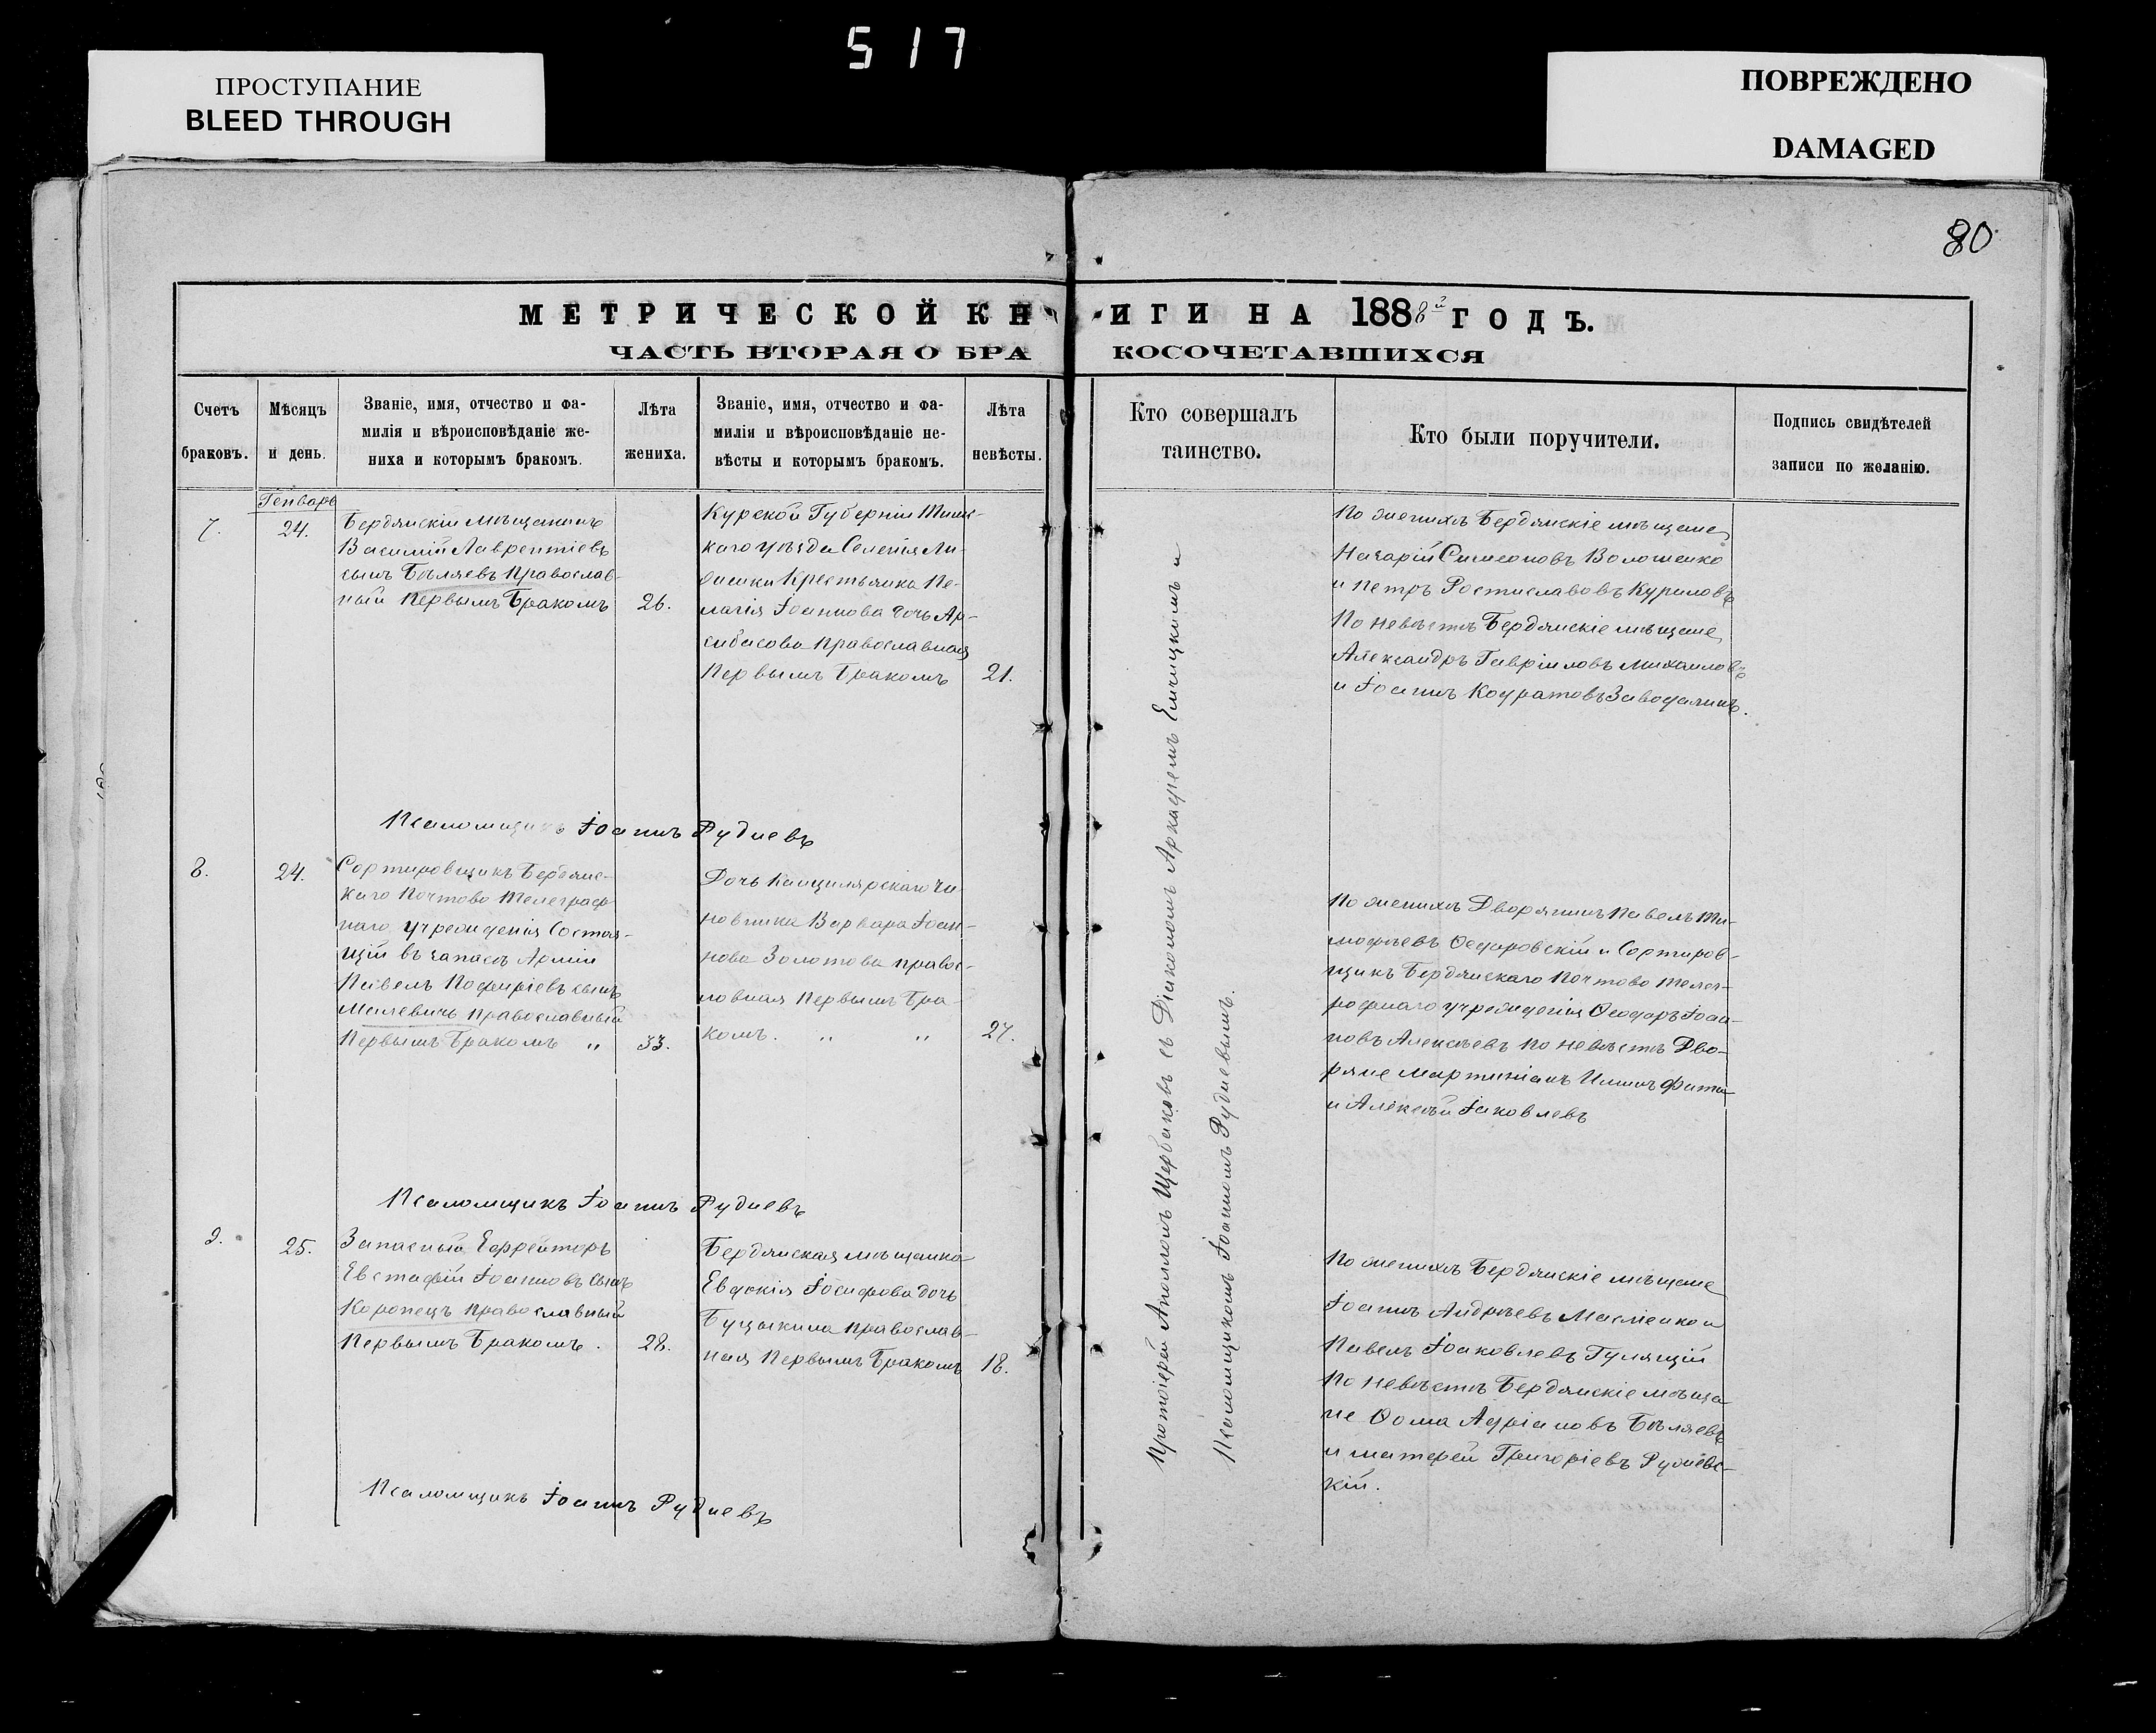 517
ПРОСТУПАНИЕ
BLEED THROUGH
ПОВРЕЖДЕНО
DAMAGED
80
МЕТРИЧЕСКОЙ КНИГИ НА 1888й ГОДЪ.
ЧАСТЬ ВТОРАЯ О БРАКОСОЧЕТАВШИХСЯ
Счетъ браковъ.
Мѣсяцъ и день.
Званіе, имя, отчество и фа-
милія и вѣроисповѣданіе же-
ниха и которымъ бракомъ.
Лѣта жениха.
Званіе, имя, отчество и фа-
милія и вѣроисповѣданіе не-
вѣсты и которымъ бракомъ.
Лѣта невѣсты.
Кто совершалъ
таинство.
Кто были поручители.
Подпись свидѣтелей
записи по желанію.
Генварь
7.
24.
Бердянскій мѣщанинъ
Василій Лаврентіевъ
сынъ Бѣляевъ Православ-
ный Первымъ Бракомъ
26.
Курской Губерніи Тимс-
каго уѣзда Селенія
Крестьянка Пе-
лагія Іоаннова дочь
Православная
Первымъ Бракомъ
21.
По женихѣ Бердянскіе мѣщане
Назарій Симеоновъ Волошенко
и Петръ Ростиславовъ Куриловъ
По невѣстѣ Бердянскіе мѣщане
Александръ Гавріиловъ Михаиловъ
и Іоаннъ Кодратовъ
Псаломщикъ Іоаннъ Рудневъ
8.
24.
Сортировщикъ Бердянс-
каго Почтово Телеграф-
наго учрежденія Состоя-
щій въ запасѣ Арміи
Павелъ Порфиріевъ сынъ
Милевичъ православный
Первымъ Бракомъ „
33.
Дочь Канцелярскаго Чи-
новника Варвара Іоан-
нова Золотова правос-
лавная Первымъ Бра-
комъ. „ „
27.
По женихѣ Дворянинъ Павелъ Ти-
мофѣевъ Ѳедоровскій и Сортиров-
щикъ Бердянскаго Почтово Телег-
рафнаго учрежденія Ѳеодоръ Іоан-
новъ Алексѣевъ По невѣстѣ Дво-
ряне Мартиніанъ
и Алексѣй Іаковлевъ
Псаломщикъ Іоаннъ Рудневъ
9.
25.
Запасный Ефрейторъ
Евстафій Іоанновъ Сынъ
Коропецъ православный
Первымъ Бракомъ.
28.
Бердянская мѣщанка
Евдокія Іосифова дочь
Буцыкина православ-
ная Первымъ Бракомъ
18.
По женихѣ Бердянскіе мѣщане
Іоаннъ Андреевъ Масліенко и
Павелъ Іоаковлевъ Гулящій
По невѣстѣ Бердянскіе мѣща
не Ѳома Адріановъ Бѣляевъ
и Матфей Григоріевъ Рудневс-
кій.
Псаломщикъ Іоаннъ Рудневъ
Протоіерей Аполлонъ Щербаковъ съ Діакономъ Аркадіемъ Еничкимъ и
Псаломщикомъ Іоанномъ Рудневымъ.